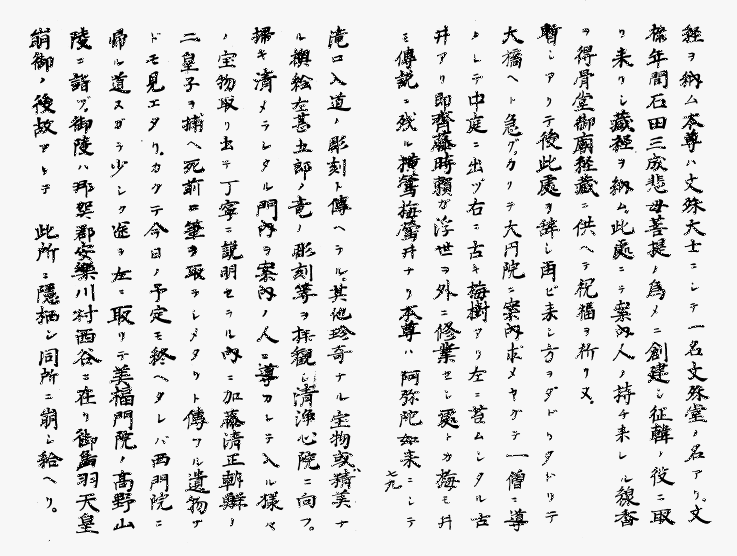 経ヲ納ム本尊ハ文殊大士ニシテ一名文殊堂ノ名アリ。文
禄年間石田三成悲母菩提ノ為メニ創建シ征韓ノ役ニ取
リ来リシ蔵経ヲ納ム。此處ニテ案内人ノ持チ来レル線香
ヲ得骨堂御廟経蔵ニ供ヘテ祝福ヲ祈リヌ。
暫シアリテ後此處ヲ辞シ再ビ来シ方ヲタドリタドリテ
大橋ヘト急グ。カクテ大円院ニ案内求メヤガテ一僧ニ導
カレテ中庭ニ出ヅ右ニ古キ梅樹アリ左ニ苔ムシタル古
井アリ即斉藤時頼ガ浮世ヲ外ニ修業セシ處トカ梅モ井
ミ傳説ニ残ル横鶯梅鶯井ナリ本尊ハ阿弥陀如来ニシテ
七九
滝口入道ノ彫刻ト傳ヘテル。其他珍奇ナル宝物或ハ精美ナ
ル襖絵左甚五郎ノ竜ノ彫刻等ヲ拝観シ清浄心院ニ向フ。
掃キ清メラレタル門内ヲ案内ノ人ニ導カレテ入ル様々
ノ宝物取リ出テ丁寧ニ説明セラル内ニ加藤清正朝鮮ノ
二皇子ヲ捕ヘ死前ニ筆ヲ取ラシメタリト傳フル遺物ナ
ドモ見エタリ。カクテ今日ノ予定モ終ヘタレバ西門院ニ
帰ル道スガラ少シク道ヲ左ニ取リテ美福門院ノ高野山
陵ニ詣ヅ。御陵ハ那賀郡安樂川村西谷ニ在リ御鳥羽天皇
崩御ノ後故アリテ 此所ニ隠栖シ同所ニ崩シ給ヘリ。